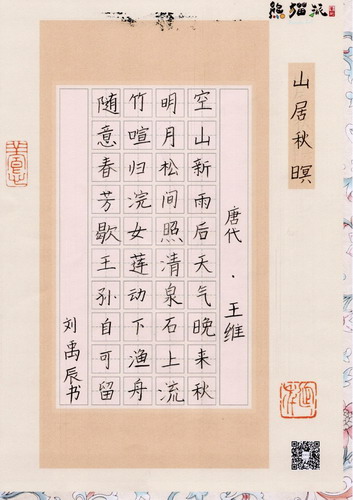 熊猫派
山居秋暝
唐代·王维
空山新雨后天气晚来秋
明月松间照清泉石上流
竹喧归浣女莲动下渔舟
随意春芳歇王孙自可留
刘禹辰书